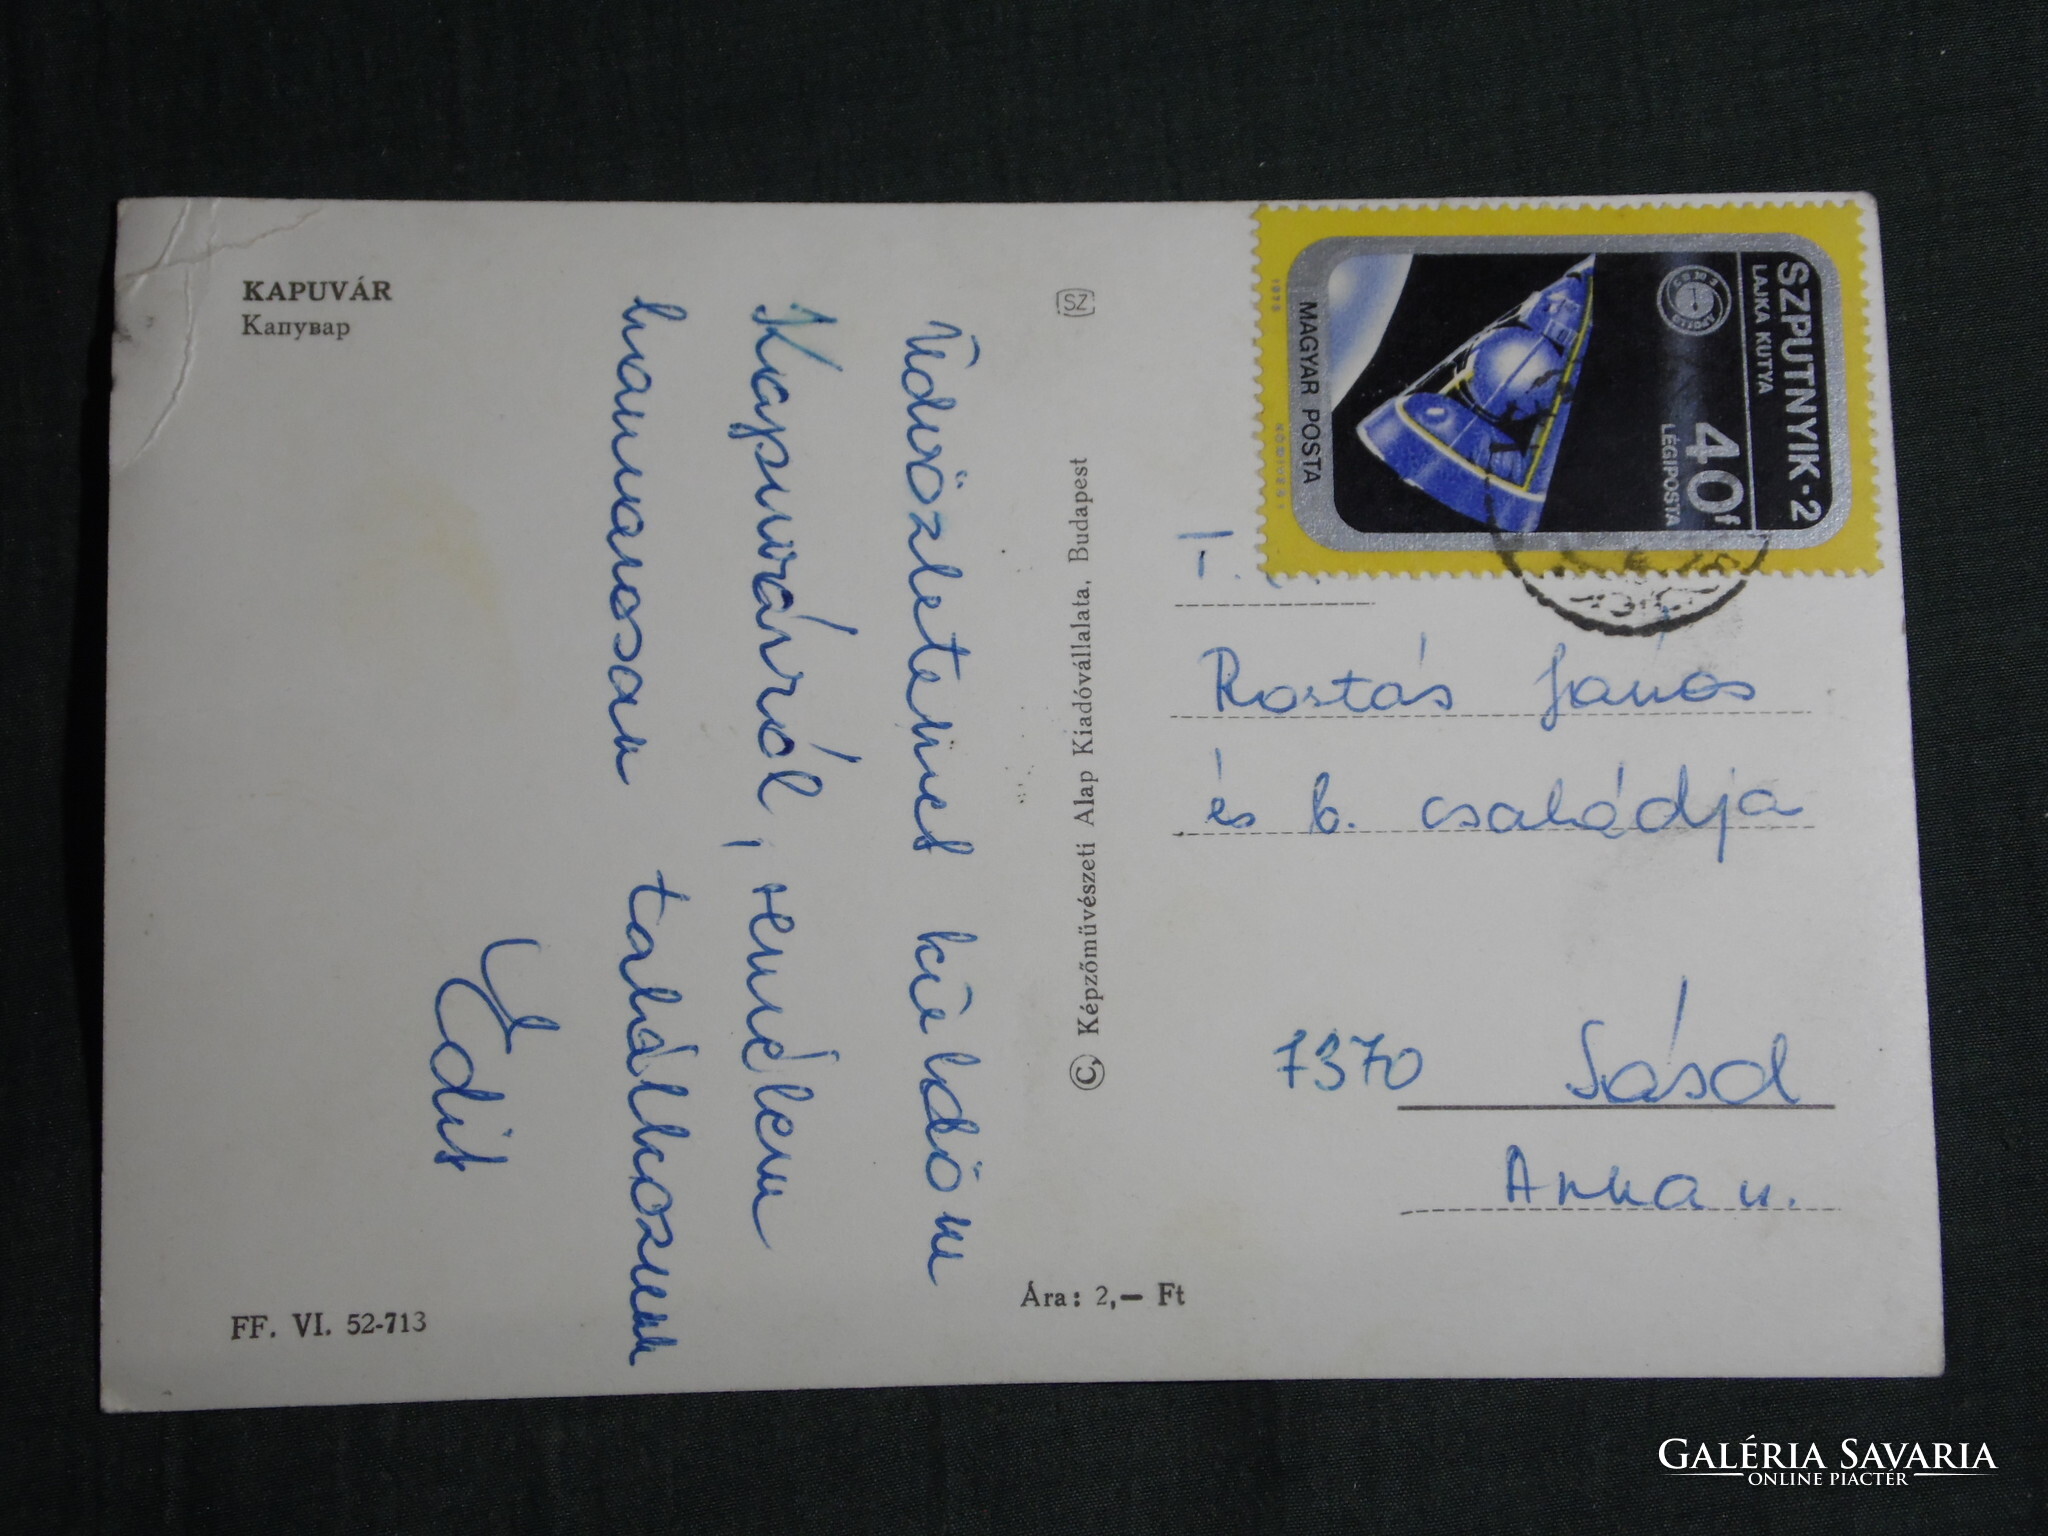 KAPUVÁR
Капувар
Üdvözletemet küldöm
Kapuvárról, remélem
hamarosan találkozunk
Edit
FF. VI. 52-713
SZ
© Képzőművészeti Alap Kiadóvállalata, Budapest
Ára: 2,— Ft
SZPUTNYIK-2
LAJKA KUTYA
40f
LÉGIPOSTA
APOLLO
MAGYAR POSTA
T.
Rostás János
és b. családja
7370 Sásd
Anna u.
GALÉRIA SAVARIA
ONLINE PIACTÉR